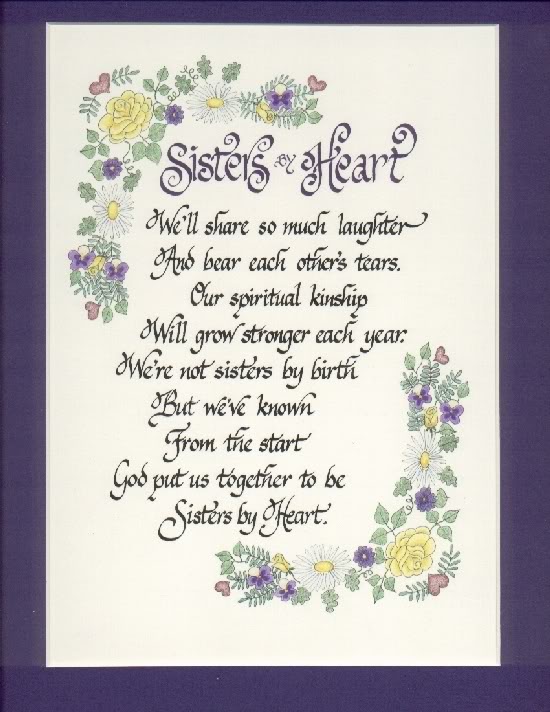 Sisters by Heart
We'll share so much laughter
And bear each other's tears.
Our spiritual kinship
Will grow stronger each year.
We're not sisters by birth
But we've known
From the start
God put us together to be
Sisters by Heart.